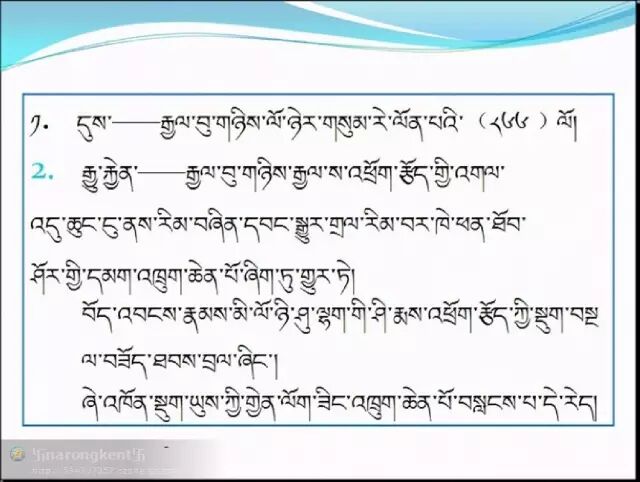 ༡. དུས་——རྒྱལ་བུ་གཉིས་ལོ་ཉེར་གསུམ་རེ་ལོན་པའི་（༨༦༦）ལོ།
2. རྒྱུ་རྐྱེན་——རྒྱལ་བུ་གཉིས་རྒྱལ་ས་འཕྲོག་རྩོད་ཀྱི་འགལ་
འདུ་ཆུང་ངུ་ནས་རིམ་བཞིན་དབང་སྒྱུར་གྲལ་རིམ་བར་ཁེ་ཕན་ཐོབ་
ཤོར་གྱི་དམག་འཁྲུག་ཆེན་པོ་ཞིག་ཏུ་གྱུར་ཏེ།
བོད་འབངས་རྣམས་མི་ལོ་ཉི་ཤུ་ལྷག་གི་ཤི་རྨས་འཕྲོག་རྩོད་ཀྱི་སྡུག་བསྔ
ལ་བཟོད་ཐབས་བྲལ་ཞིང་།
ཞེ་འཁོན་སྡུག་ཡུས་ཀྱི་གྱེན་ལོག་ཟིང་འཁྲུག་ཆེན་པོ་བསླངས་པ་དེ་རེད།
卐narongkent卐